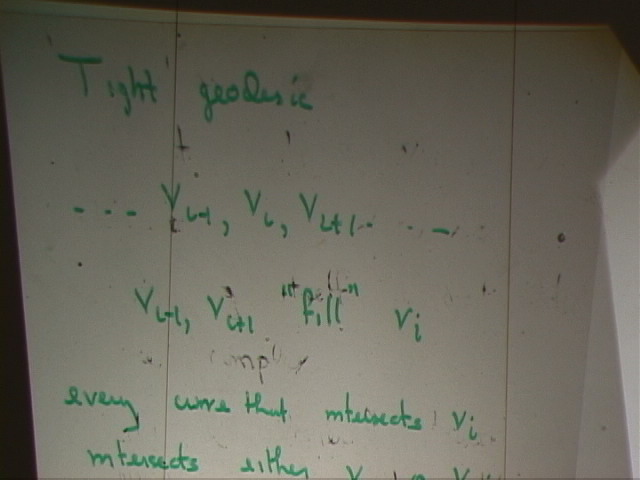 Tight geodesic
... V_{i-1}, V_i, V_{i+1} ....
V_{i-1}, V_{i+1} "fill" V_i
every curve that intersects V_i
intersects either